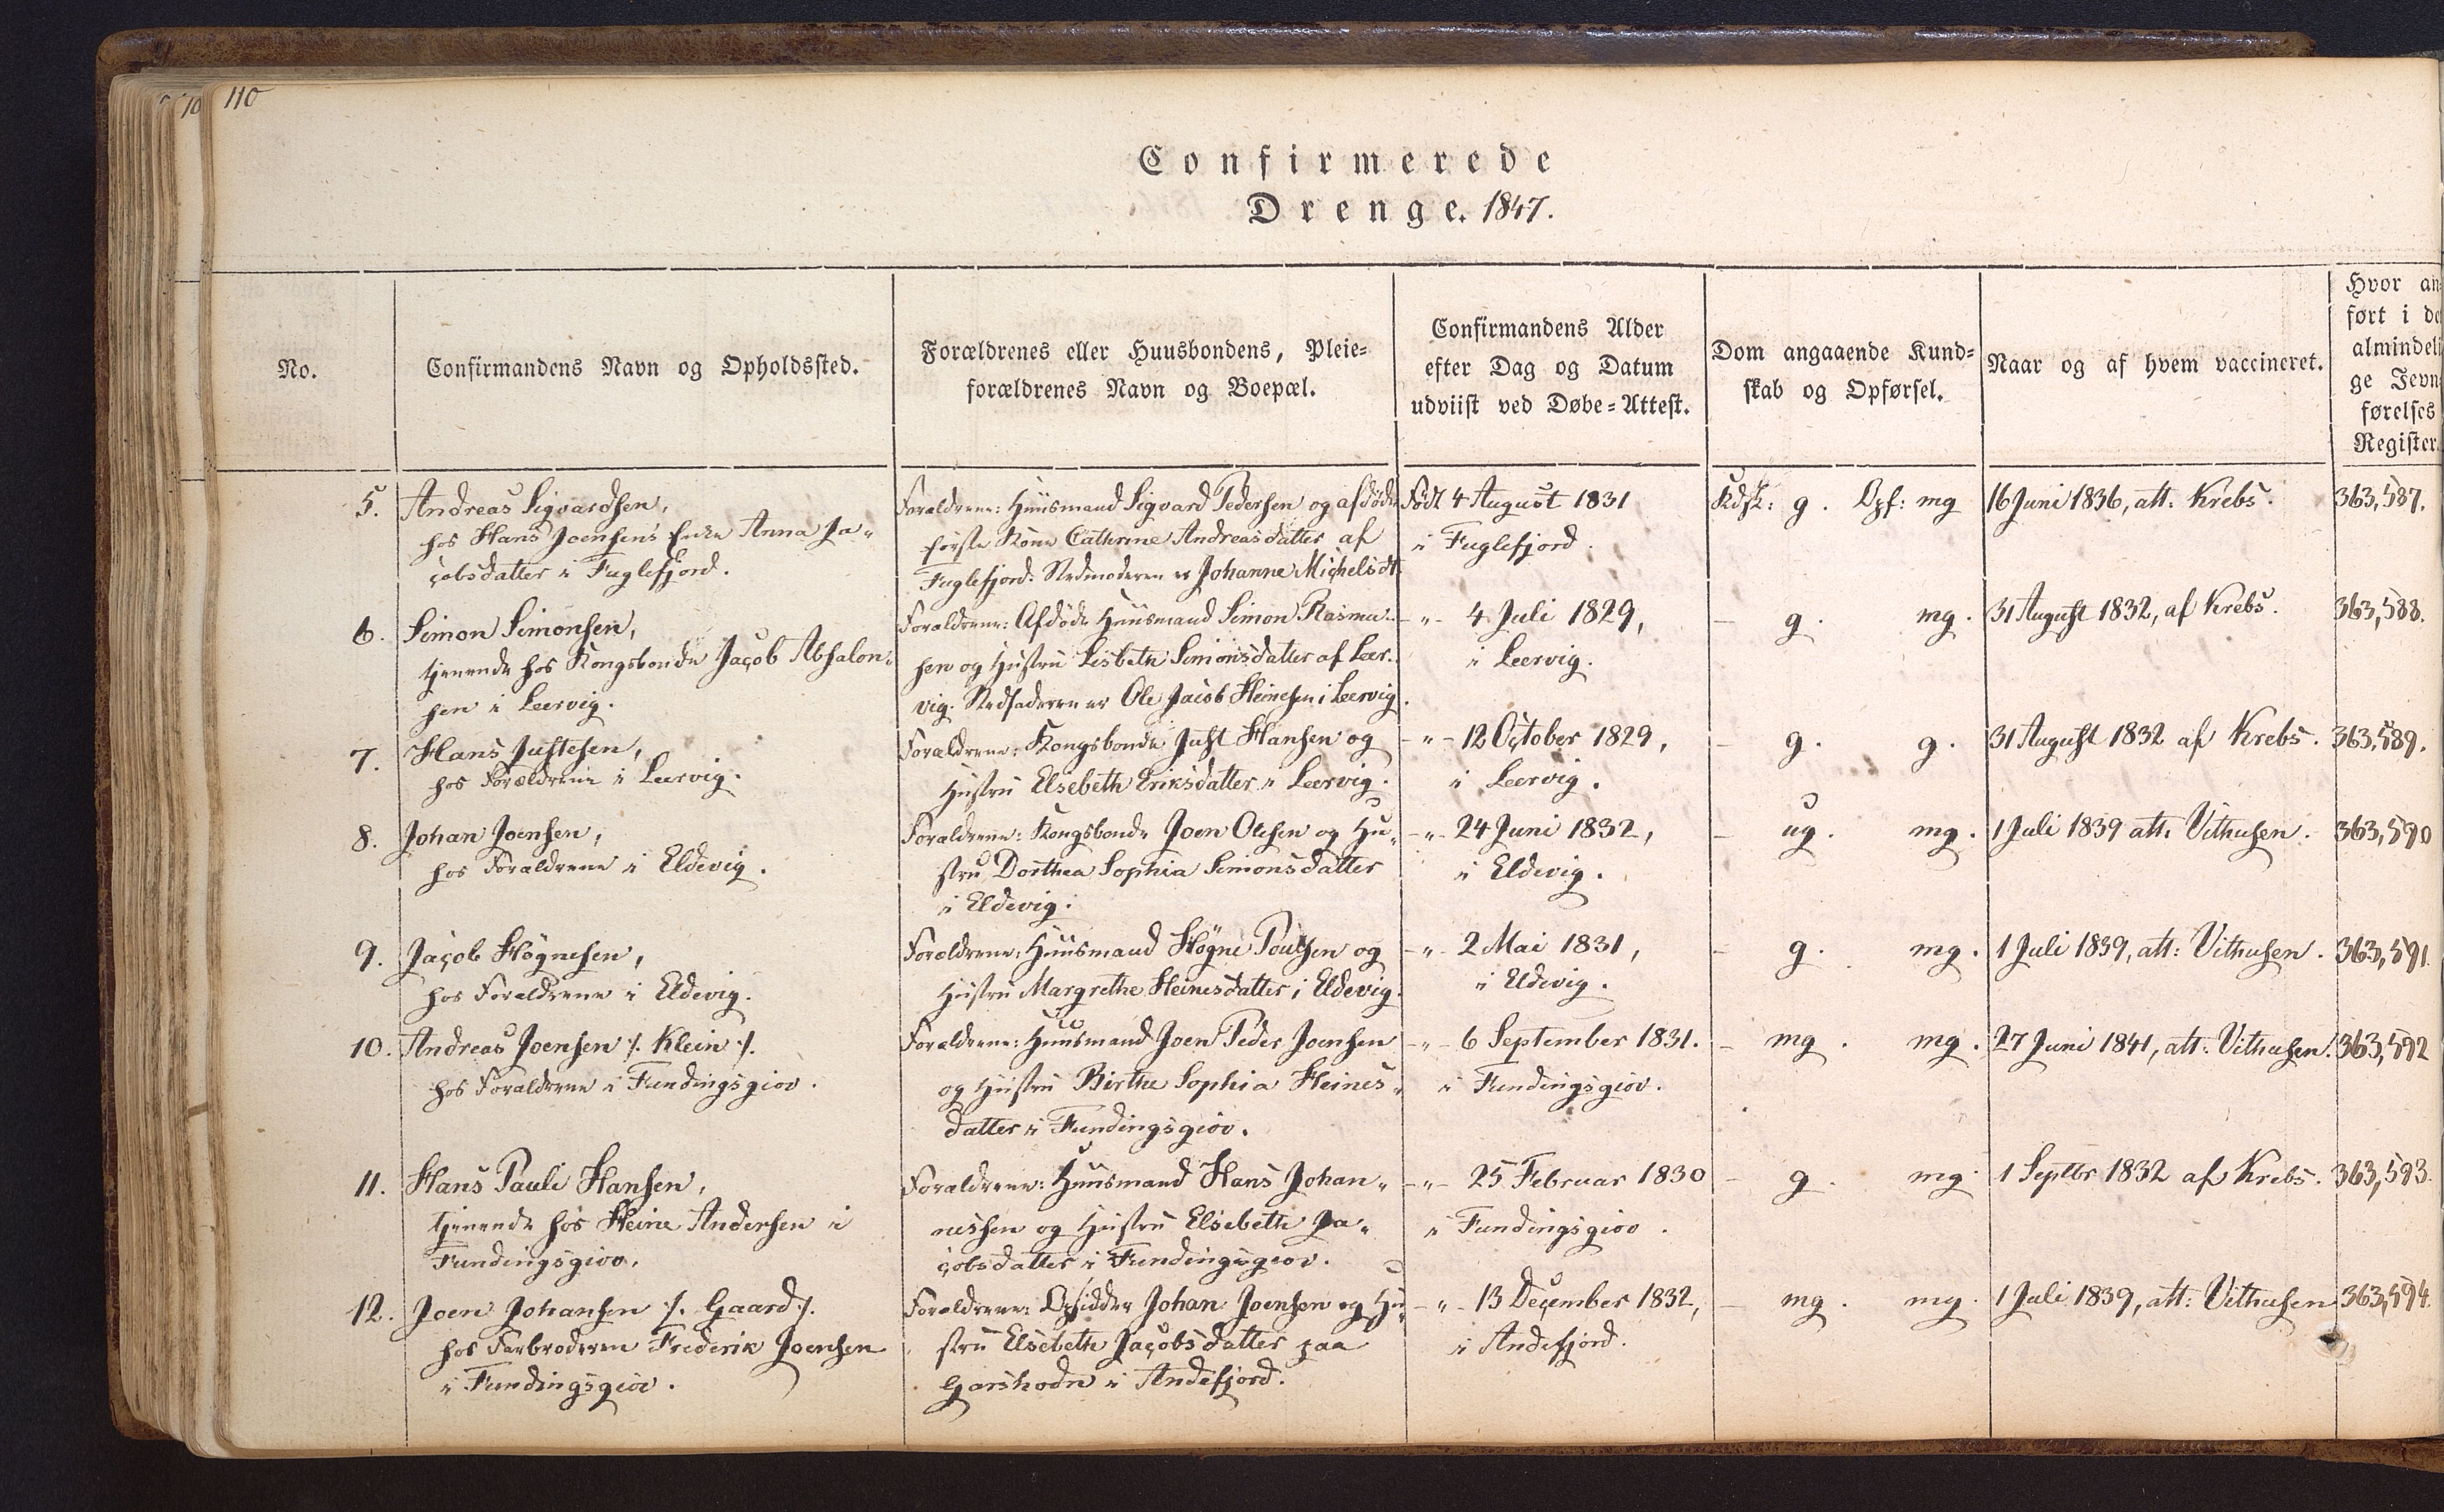 110
10
Confirmerede
Drenge. 1847.
No.
Confirmandens Navn og Opholdssted.
Forældrenes eller Huusbondens, Pleie=
forældrenes Navn og Boepæl.
Confirmandens Alder
efter Dag og Datum
udviist ved Døbe=Attest.
Dom angaaende Kund=
skab og Opførsel.
Naar og af hvem vaccineret.
Hvor an
ført i de
almindeli
ge Jevn
førelses
Register.
5.
Andreas Sigvardsen,
hos Hans Joensens Enke Anna Ja-
cobsdatter i Fuglefjord.
Forældrene: Huusmand Sigvard Pedersen og afdøde
første Kone Cathrine Andreasdatter af
Fuglefjord. Stedmoderen er Johanne Michelsdt.
Født 4 August 1831
i Fuglefjord.
Kdsk: g. Opf: mg
16 Juni 1836, att: Krebs.
363,587.
6.
Simon Simonsen,
tjenende hos Kongsbonde Jacob Absalon-
sen i Leervig.
Forældrene: Afdøde Huusmand Simon Rasmu-
sen og Hustru Lisbeth Simonsdatter af Leer-
vig. Stedfaderen er Ole Jacob Heinesen i Leervig.
-"- 4 Juli 1829,
i Leervig.
- g. mg.
31 August 1832, af Krebs.
363,588.
7.
Hans Justesen,
hos Forældrene i Leervig.
Forældrene: Kongsbonde Just Hansen og
Hustru Elsebeth Eriksdatter i Leervig.
-"- 12 October 1829,
i Leervig.
- g. g.
31 August 1832 af Krebs.
363,589.
8.
Johan Joensen,
hos Forældrene i Eldevig.
Forældrene: Kongsbonde Joen Olesen og Hu-
stru Dorthea Sophia Simonsdatter
i Eldevig.
-"- 24 Juni 1832,
i Eldevig.
- ug. mg.
1 Juli 1839 att. Vithusen.
363,590
9.
Jacob Høgnesen,
hos Forældrene i Eldevig.
Forældrene: Huusmand Høgne Poulsen og
Hustru Margrethe Heinesdatter i Eldevig.
-"- 2 Mai 1831,
i Eldevig.
- g. mg.
1 Juli 1839, att: Vithusen.
363,591
10.
Andreas Joensen ./. Klein ./.
hos Forældrene i Fundingsgiov.
Forældrene: Huusmand Joen Peder Joensen
og Hustru Birthe Sophia Heines-
datter i Fundingsgiov.
-"- 6 September 1831.
i Fundingsgiov.
- mg. mg.
27 Juni 1841, att: Vithusen.
363,592
11.
Hans Pauli Hansen,
tjenende hos Heine Andersen i
Fundingsgiov.
Forældrene: Huusmand Hans Johan-
nessen og Hustru Elsebeth Ja-
cobsdatter i Fundingsgiov.
-"- 25 Februar 1830
i Fundingsgiov.
- g. mg.
1 Septbr 1832 af Krebs.
363,593.
12.
Joen Johansen ./. Gaard ./.
hos Farbroderen Frederik Joensen
i Fundingsgiov.
Forældrene: Opsidder Johan Joensen og Hu-
stru Elsebeth Jacobsdatter paa
i Andefjord.
-"- 13 December 1832,
i Andefjord.
- mg. mg.
1 Juli 1839, att: Vithusen
363,594.